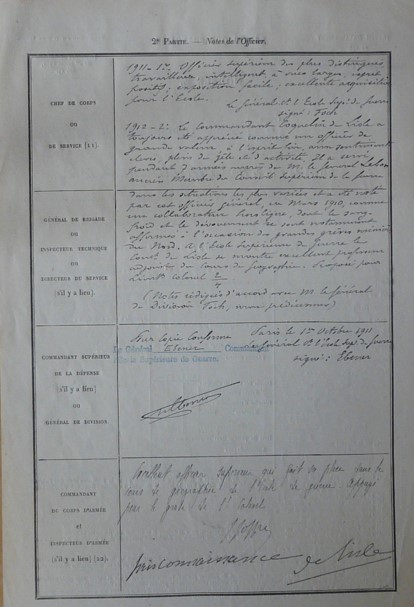 2e PARTIE. — Notes de l'Officier.
CHEF DE CORPS
OU
DE SERVICE (11)
1911 - 1e. Officier supérieur des plus distingués
travailleur, intelligent, à vues larges, esprit
positif, exposition facile; excellente acquisition
pour l'Ecole.
Le Général Ct l'Ecole Supre de guerre
signé: Foch
1912 - 2: Le commandant de Lisle a
toujours été apprécié comme un officier de
grande valeur, à l'esprit
élevé, plein de zèle et d'activité, il a servi
pendant années auprès de M. le général
ancien Membre du Conseil Supérieur de la guerre
GÉNÉRAL DE BRIGADE
OU
INSPECTEUR TECHNIQUE
OU
DIRECTEUR DU SERVICE
(s'il y a lieu).
dans les situations les plus variées et a été noté
par cet officier général, en Mars 1910, comme
un collaborateur hors ligne, dont le sang
froid et le dévouement se sont notamment
affirmés à l'occasion des grandes grèves minières
du Nord. A l'Ecole Supérieure de Guerre le
Comt de Lisle se montre excellent professeur
adjoint du Cours de géographie. Proposé pour
Lieutt colonel 2/4
(Notes rédigées d'accord avec M. le général
de Division Foch, mon prédécesseur)
COMMANDANT SUPÉRIEUR
DE LA DÉFENSE
(s'il y a lieu)
OU
GÉNÉRAL DE DIVISION
Pour Copie Conforme
Paris le 1er Octobre 1911
Le Général Ebener Commandant
l'École Supérieure de Guerre.
Le Général Ct l'Ecole Supre de guerre
signé: Ebener
COMMANDANT
DU CORPS D'ARMÉE
et
INSPECTEUR D'ARMÉE
(s'il y a lieu) (12).
officier supérieur qui fait sa place dans le
cours de géographie de l'Ecole de guerre. Appuyé
pour le grade de Lt Colonel.
J Joffre
pris connaissance
de Lisle